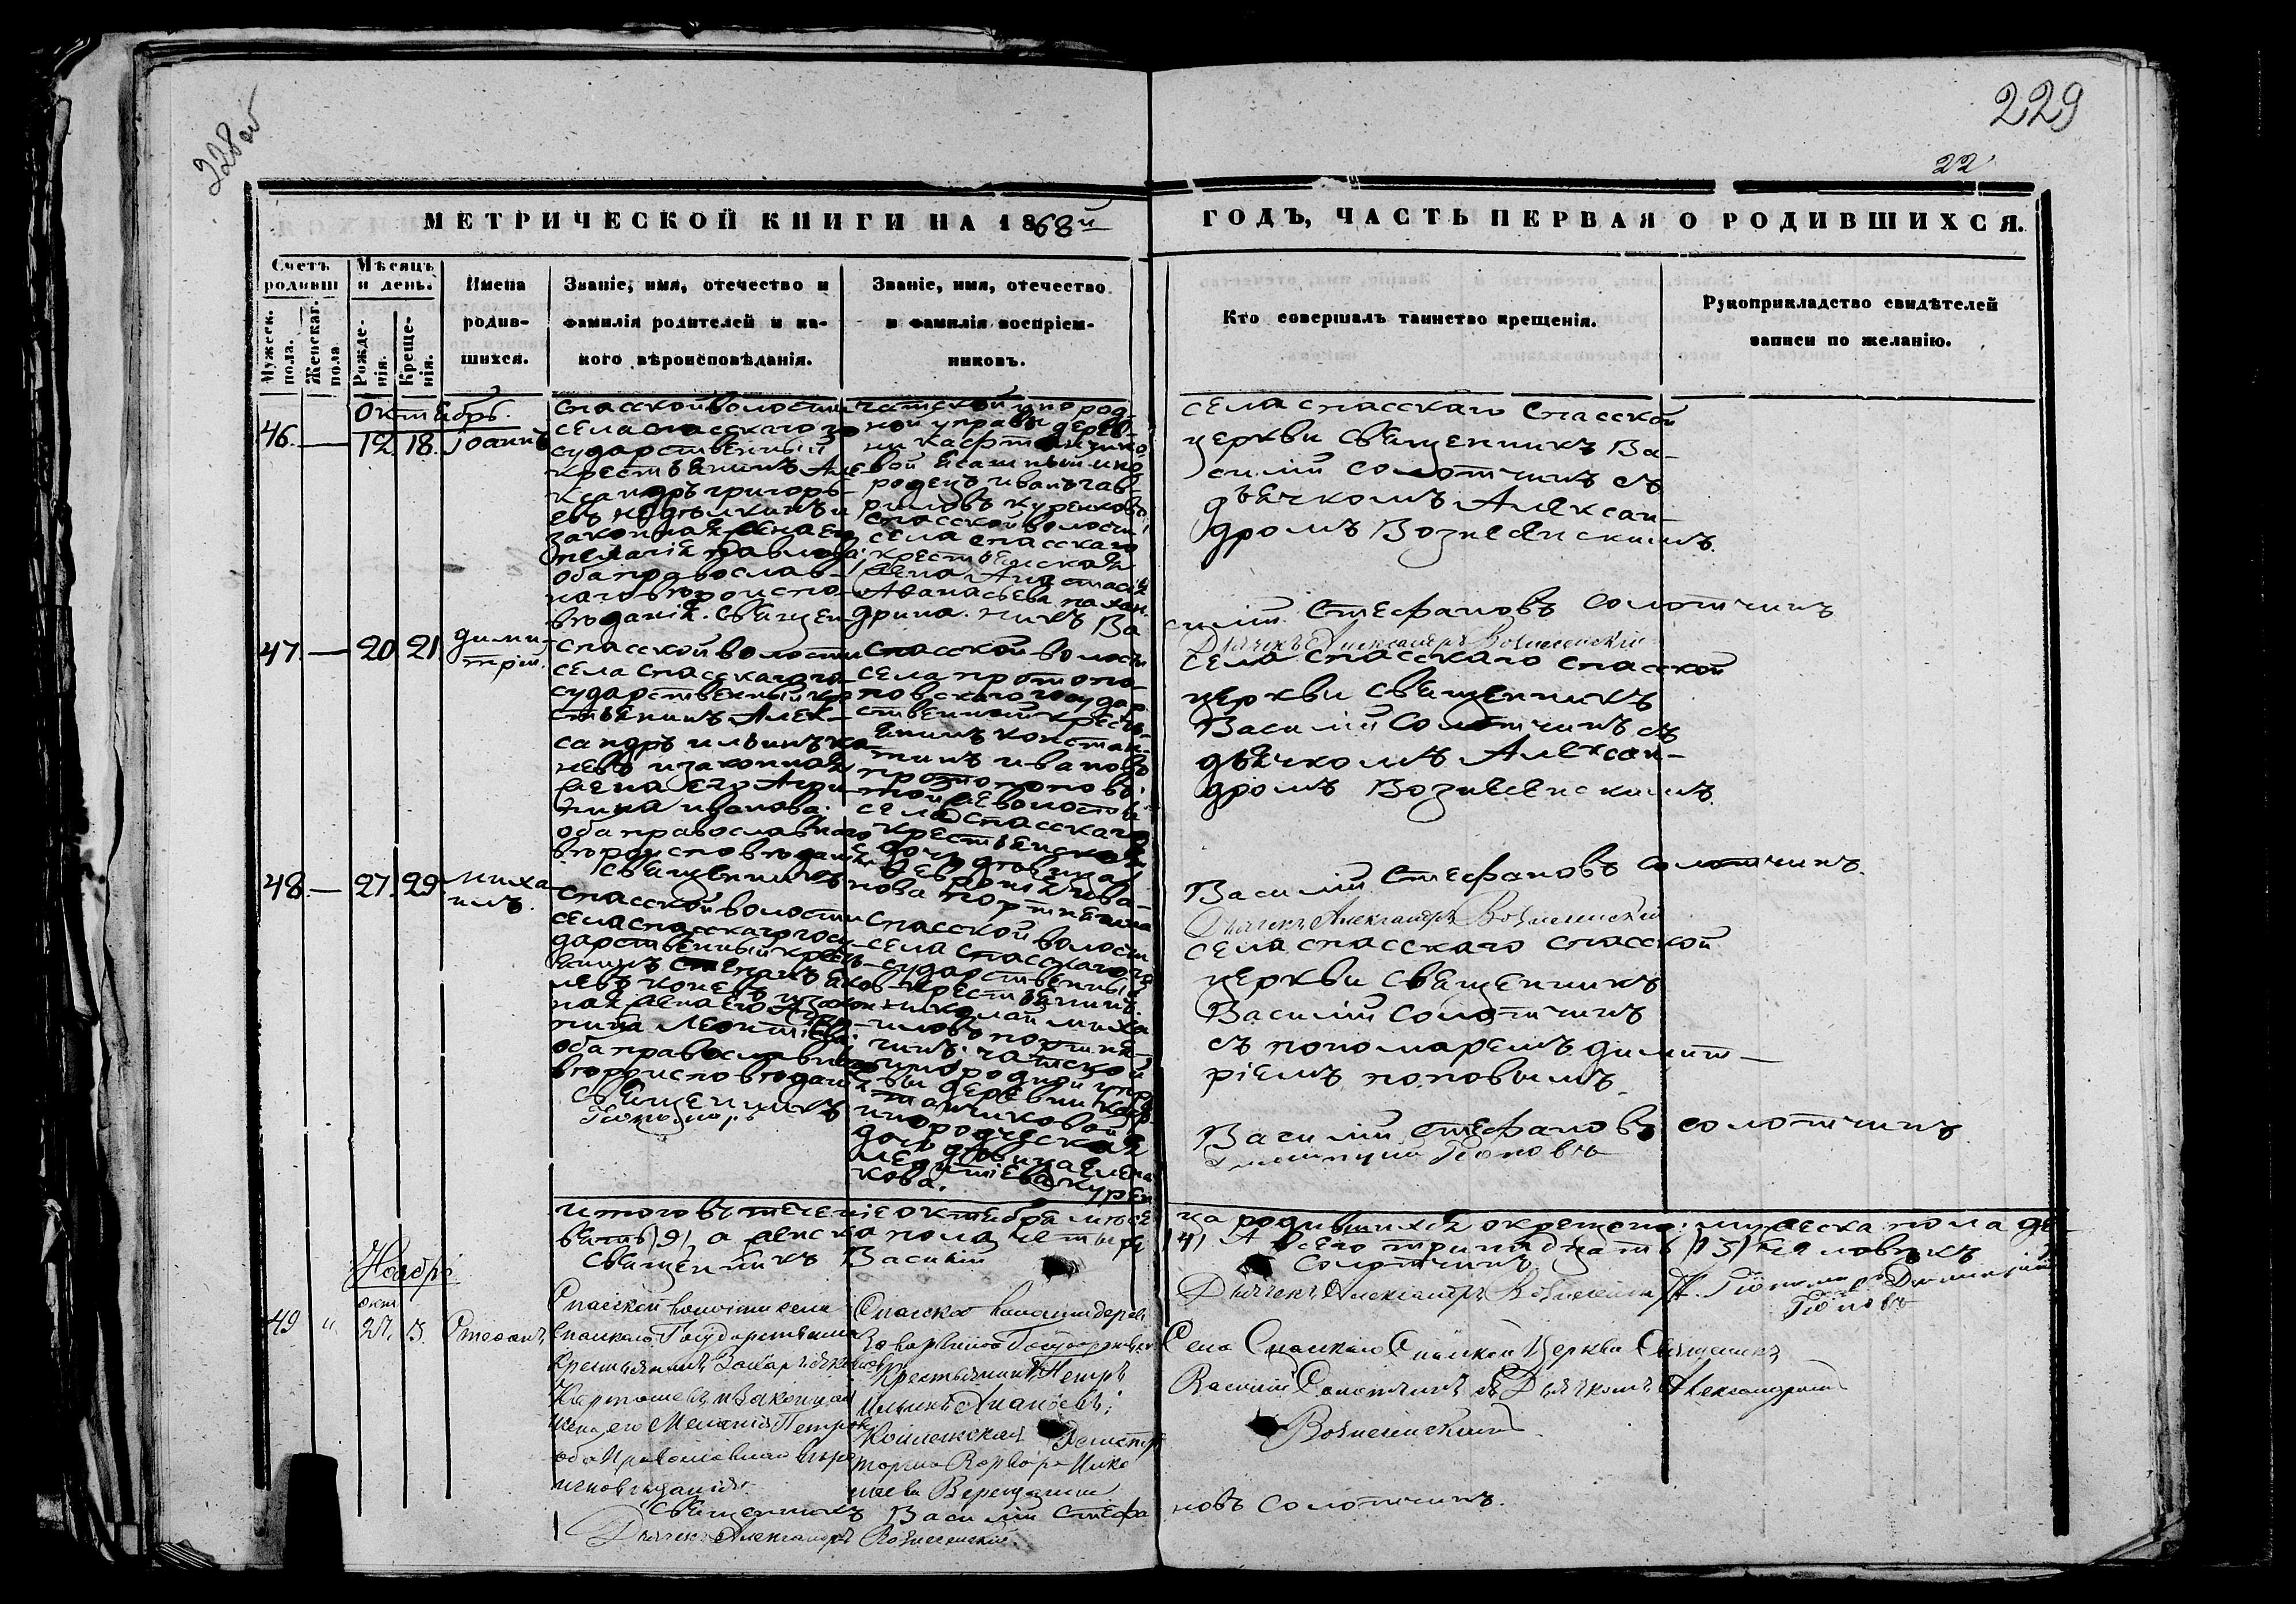 228 об
229
22
МЕТРИЧЕСКОЙ КНИГИ НА 1868й
ГОДЪ, ЧАСТЬ ПЕРВАЯ О РОДИВШИХСЯ.
Счетъ родивш
Мужеск. пола.
Женскаг. пола
Мѣсяцъ и день.
Рожденія.
Крещенія.
Имена родившихся.
Званіе, имя, отечество и фамилія родителей и какого вѣроисповѣданія.
Званіе, имя, отечество и фамилія воспріемниковъ.
Кто совершалъ таинство крещенія.
Рукоприкладство свидѣтелей записи по желанію.
Октябрь.
46. — 12. 18. Іоаннъ
спасской волости
села спасскаго го
сударственный
крестьянинъ Але
ксандръ григорь-
евъ
законная жена его
пелагія павлова
оба православ-
наго вѣроиспо-
вѣданія. Священ
ной управы дерев
ни
родецъ иванъ гав
риловъ куренковъ
спасской волости
села спасскаго
крестьянская
жена Анастасія
Аѳанасьева
никъ Ва
села спасскаго Спасской
церкви священникъ Ва-
силій солотчинъ съ
дьячкомъ Алексан-
дромъ Вознесенскимъ.
силій Стефановъ солотчинъ
Дьячекъ Александръ Вознесенскій
47. — 20. 21. дими-
трій.
спасской волости
села спасскаго го
сударственный кр
стьянинъ Алек-
сандръ ильинъ ка
невъ и законная
жена его Агри-
пина иванова.
оба православнаго
вѣроисповѣданія
Священникъ
спасской волости
села протопо-
повскаго государ
ственный кресть
янинъ констан-
тинъ ивановъ
протопоповъ
той же волости
села спасскаго
крестьянская
дочь дѣвица
Евдокія ива-
нова портнягина
села спасскаго спасской
церкви священникъ
Василій солотчинъ съ
дьячкомъ Алексан-
дромъ Вознесенскимъ.
Василій Стефановъ солотчинъ.
Дьячекъ Александръ Вознесенскій
48. — 27. 29. миха
илъ.
спасской волости
села спасскаго госу
дарственный кресть-
янинъ
ная жена его
пина Леонтіева.
оба православнаго
вѣроисповѣданія
Священникъ
Пономарь
спасской волости
села спасскаго го
сударственный
крестьянинъ
николай миха
иловъ портня-
гинъ. чатской
инородной упра
вы деревни каф
танчиковой
инородческая
дочь дѣвица
курен
кова.
села спасскаго спасской
церкви священникъ
Василій солотчинъ
съ пономаремъ димит-
ріемъ поповымъ.
Василій стефановъ солотчинъ
Димитрій Поповъ
итого въ теченіе октября меся
ца родившихся окрещено: мужеска пола де
вять (9) а женска пола четыре
(4) А всего тринадцать (13) человѣкъ
Священникъ Василій
Солотчинъ
Дьячекъ Александръ Вознесенскій
Пономарь Димитрій
Поповъ
Ноябрь
49 " окт 27. 3. Стефанъ
Спасской волости села
Спаскаго Государственный
Крестьянинъ
Карташевъ и Законная
жена его Меланія Петрова
оба Православнаго вѣро
исповѣданія.
Спаской волости дерев
Крестьянинъ Петръ
Ильинъ Ананьевъ;
Варвара Нико
лаева Верещагина
Села Спаскаго Спаской Церкви Священникъ
Василій Солотчинъ съ Дьячкомъ Александромъ
Вознесенскимъ
Священникъ Василій Стефа
новъ солотчинъ.
Дьячекъ Александръ Вознесенскій.